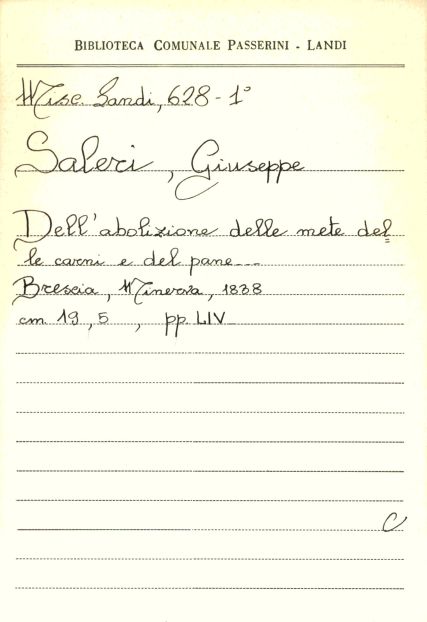 BIBLIOTECA COMUNALE PASSERINI - LANDI
Misc. Landi, 628 - 1°
Saleri, Giuseppe
Dell'abolizione delle mete del=
le carni e del pane---
Brescia, Minerva, 1838
cm. 19,5 , pp. LIV
C